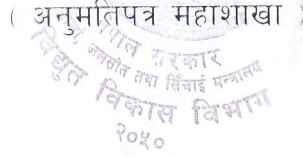 ( अनुमतिपत्र महाशाखा )
नेपाल सरकार
जलस्रोत तथा सिंचाई मन्त्रालय
विद्युत विकास विभाग
२०५०